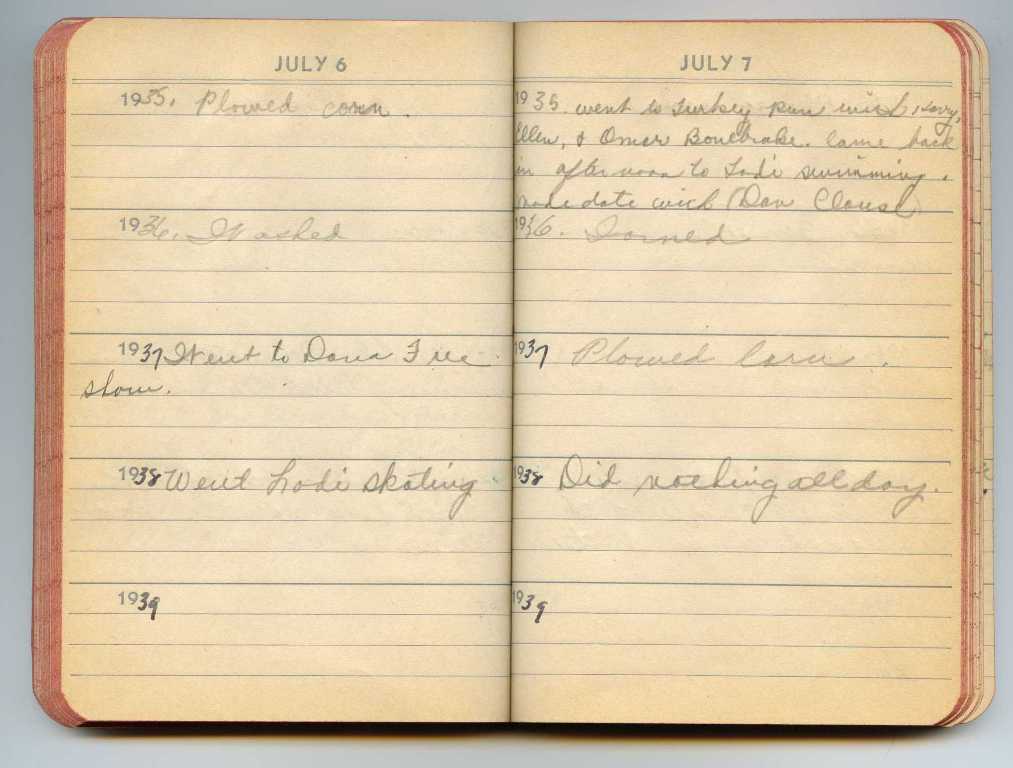 JULY 6
1935. Plowed corn.
1936. Washed
1937 Went to Dana Free
show.
1938 Went Lodi skating
1939
JULY 7
1935. went to Turkey Run with
Ellen, & Omer Bonebrake. Came back
in afternoon to Lodi swimming.
made date with (Dan Clouse)
1936. Ironed
1937 Plowed Corn.
1938 Did nothing all day.
1939